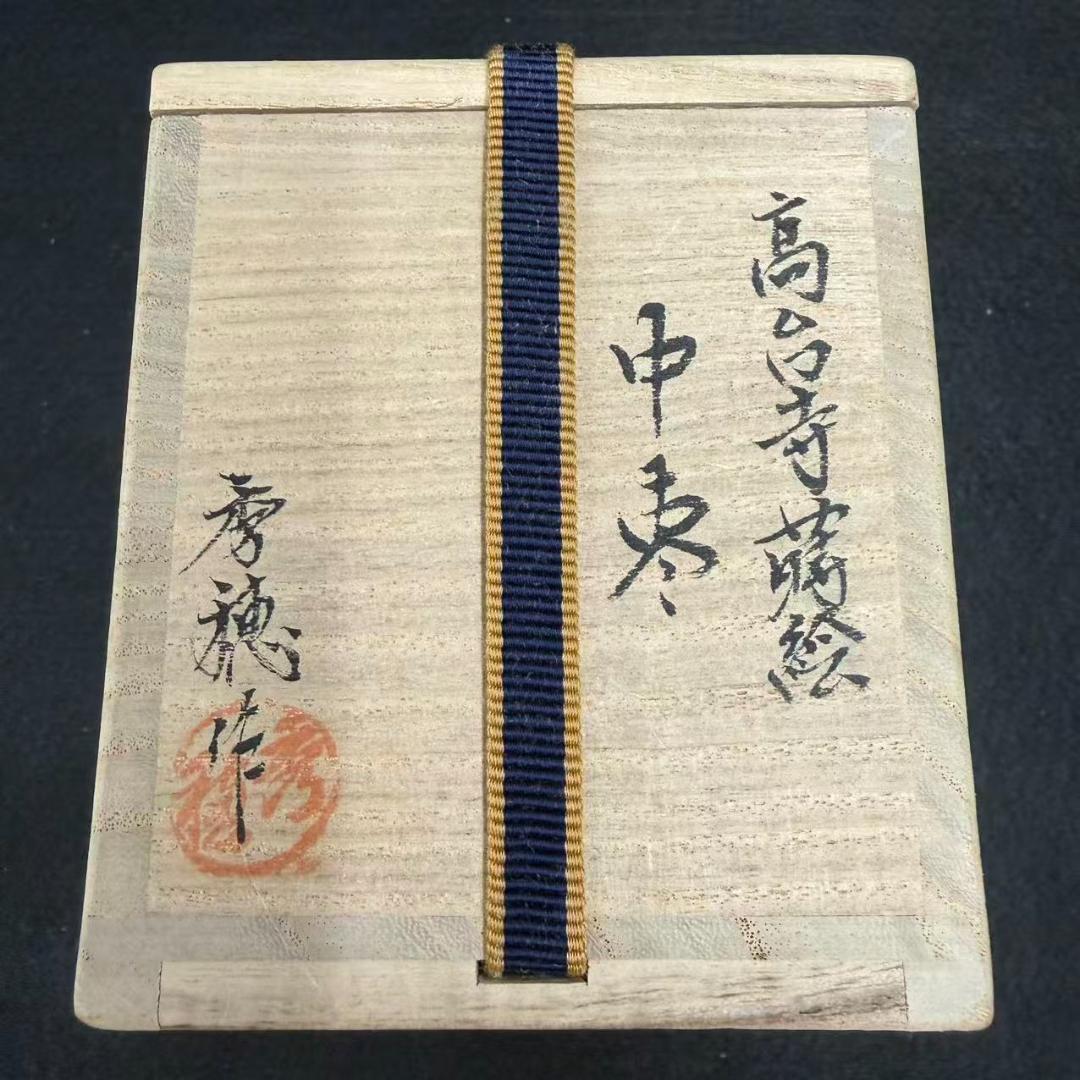 高台寺蒔絵
中棗
秀穂作